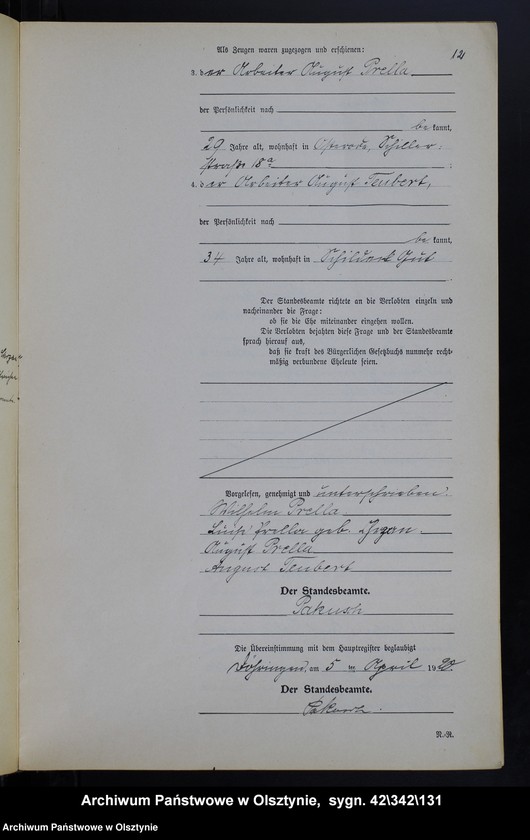 12
Als Zeugen waren zugezogen und erschienen:
3. der Arbeiter August Prella
der Persönlichkeit nach
be kannt,
29 Jahre alt, wohnhaft in Osterode, Schiller-
straße 18 a
4. der Arbeiter August Teubert,
der Persönlichkeit nach
be kannt,
34 Jahre alt, wohnhaft in Schildeck Gut
Der Standesbeamte richtete an die Verlobten einzeln und
nacheinander die Frage:
ob sie die Ehe miteinander eingehen wollen.
Die Verlobten bejahten diese Frage und der Standesbeamte
sprach hierauf aus,
daß sie kraft des Bürgerlichen Gesetzbuchs nunmehr recht-
mäßig verbundene Eheleute seien.
Vorgelesen, genehmigt und unterschrieben:
Wilhelm Prella
Prella geb.
August Prella
August Teubert
Der Standesbeamte.
Pakusch
Die Übereinstimmung mit dem Hauptregister beglaubigt
Döhringen, am 5 ten April 1920.
Der Standesbeamte.
Pakusch.
N.-R.
Archiwum Państwowe w Olsztynie, sygn. 42\342\131
Archiwum Państwowe w Olsztynie